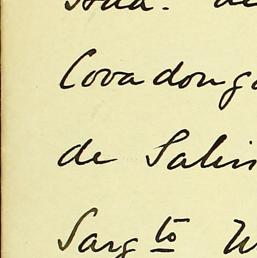 Covadonga
de Salin
Sargto W